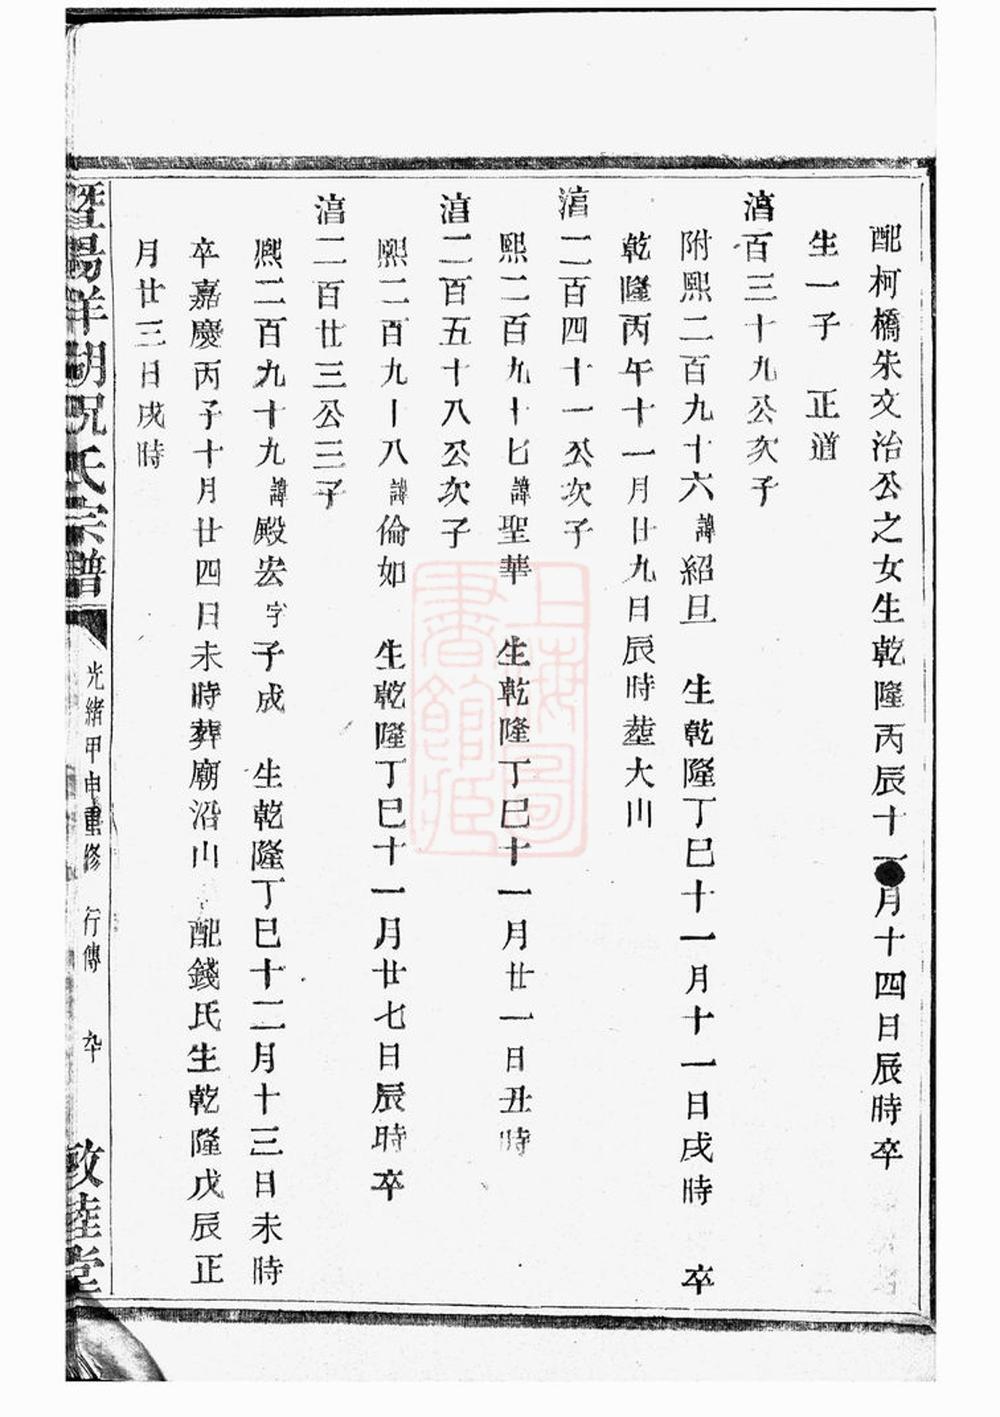 配柯橋朱文治公之女生乾隆丙辰十一月十四日辰時卒
生一子 正道
淯百三十九公次子
附熙二百九十六諱紹旦 生乾隆丁巳十一月十一日戌時 卒
乾隆丙午十一月廿九日辰時塟大川
淯二百四十一公次子
熙二百九十七諱聖華 生乾隆丁巳十一月廿一日丑時
淯二百五十八公次子
熙二百九十八諱倫如 生乾隆丁巳十一月廿七日辰時卒
淯二百廿三公三子
熙二百九十九諱殿宏字子成 生乾隆丁巳十二月十三日未時
卒嘉慶丙子十月廿四日未時葬廟沿山 配錢氏生乾隆戊辰正
月廿三日戌時
暨陽祥湖祝氏宗譜 光緒甲申重修 行傳 卆 敦睦堂
上海圖書館藏